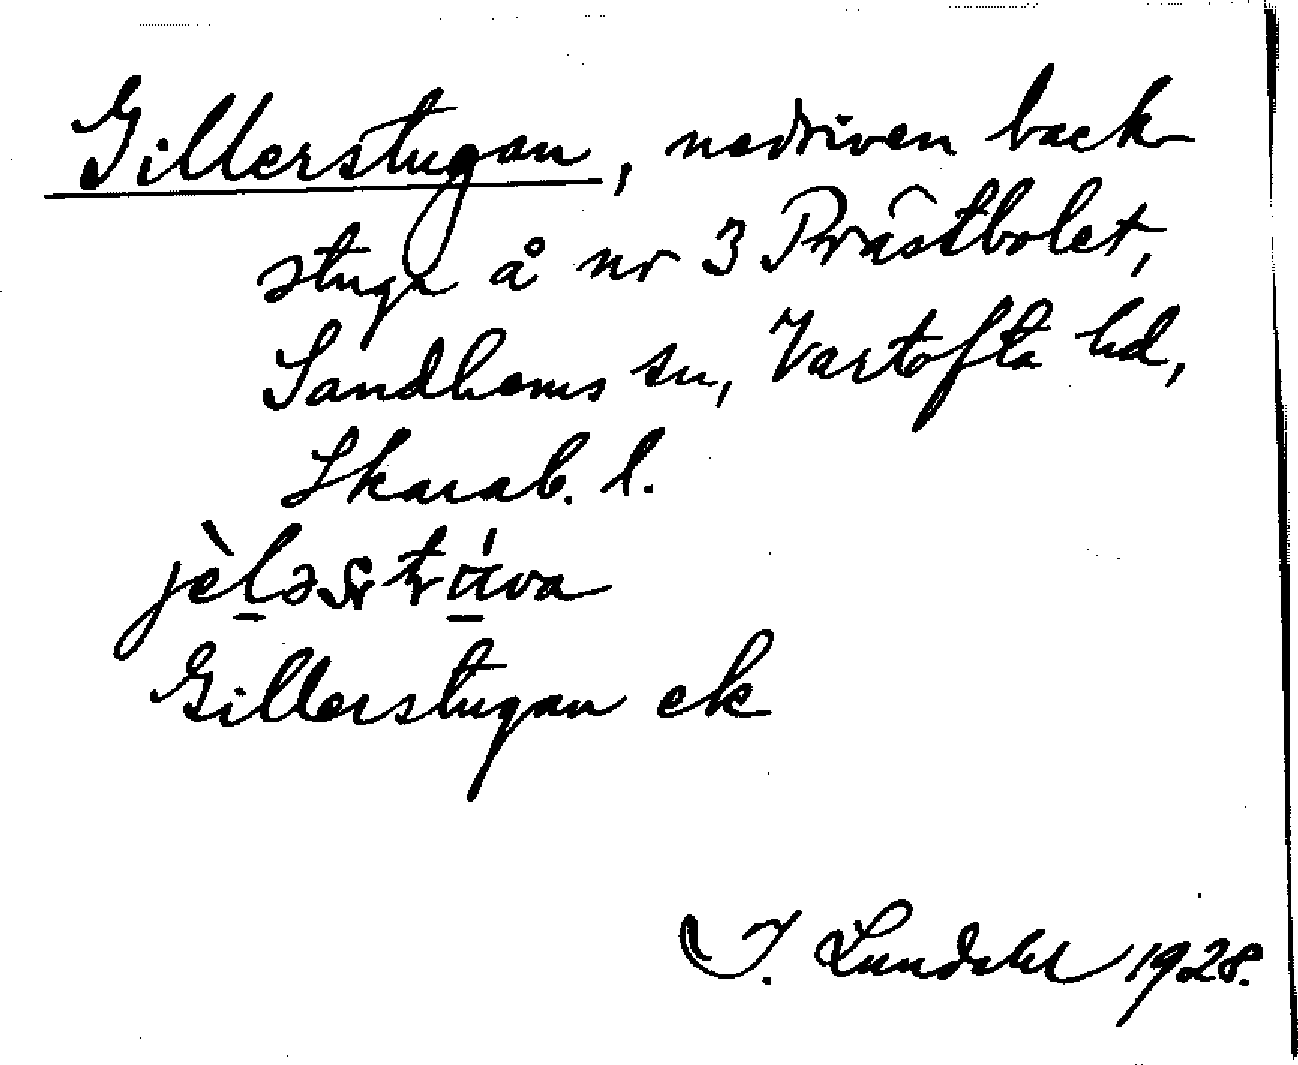 Gillerstugan, nedriven back-
stuga å nr 3 Prästbolet,
Sandhems sn, Vartofta hd,
Skarab. l.
Gillerstugan ek
I. Lundahl 1928.